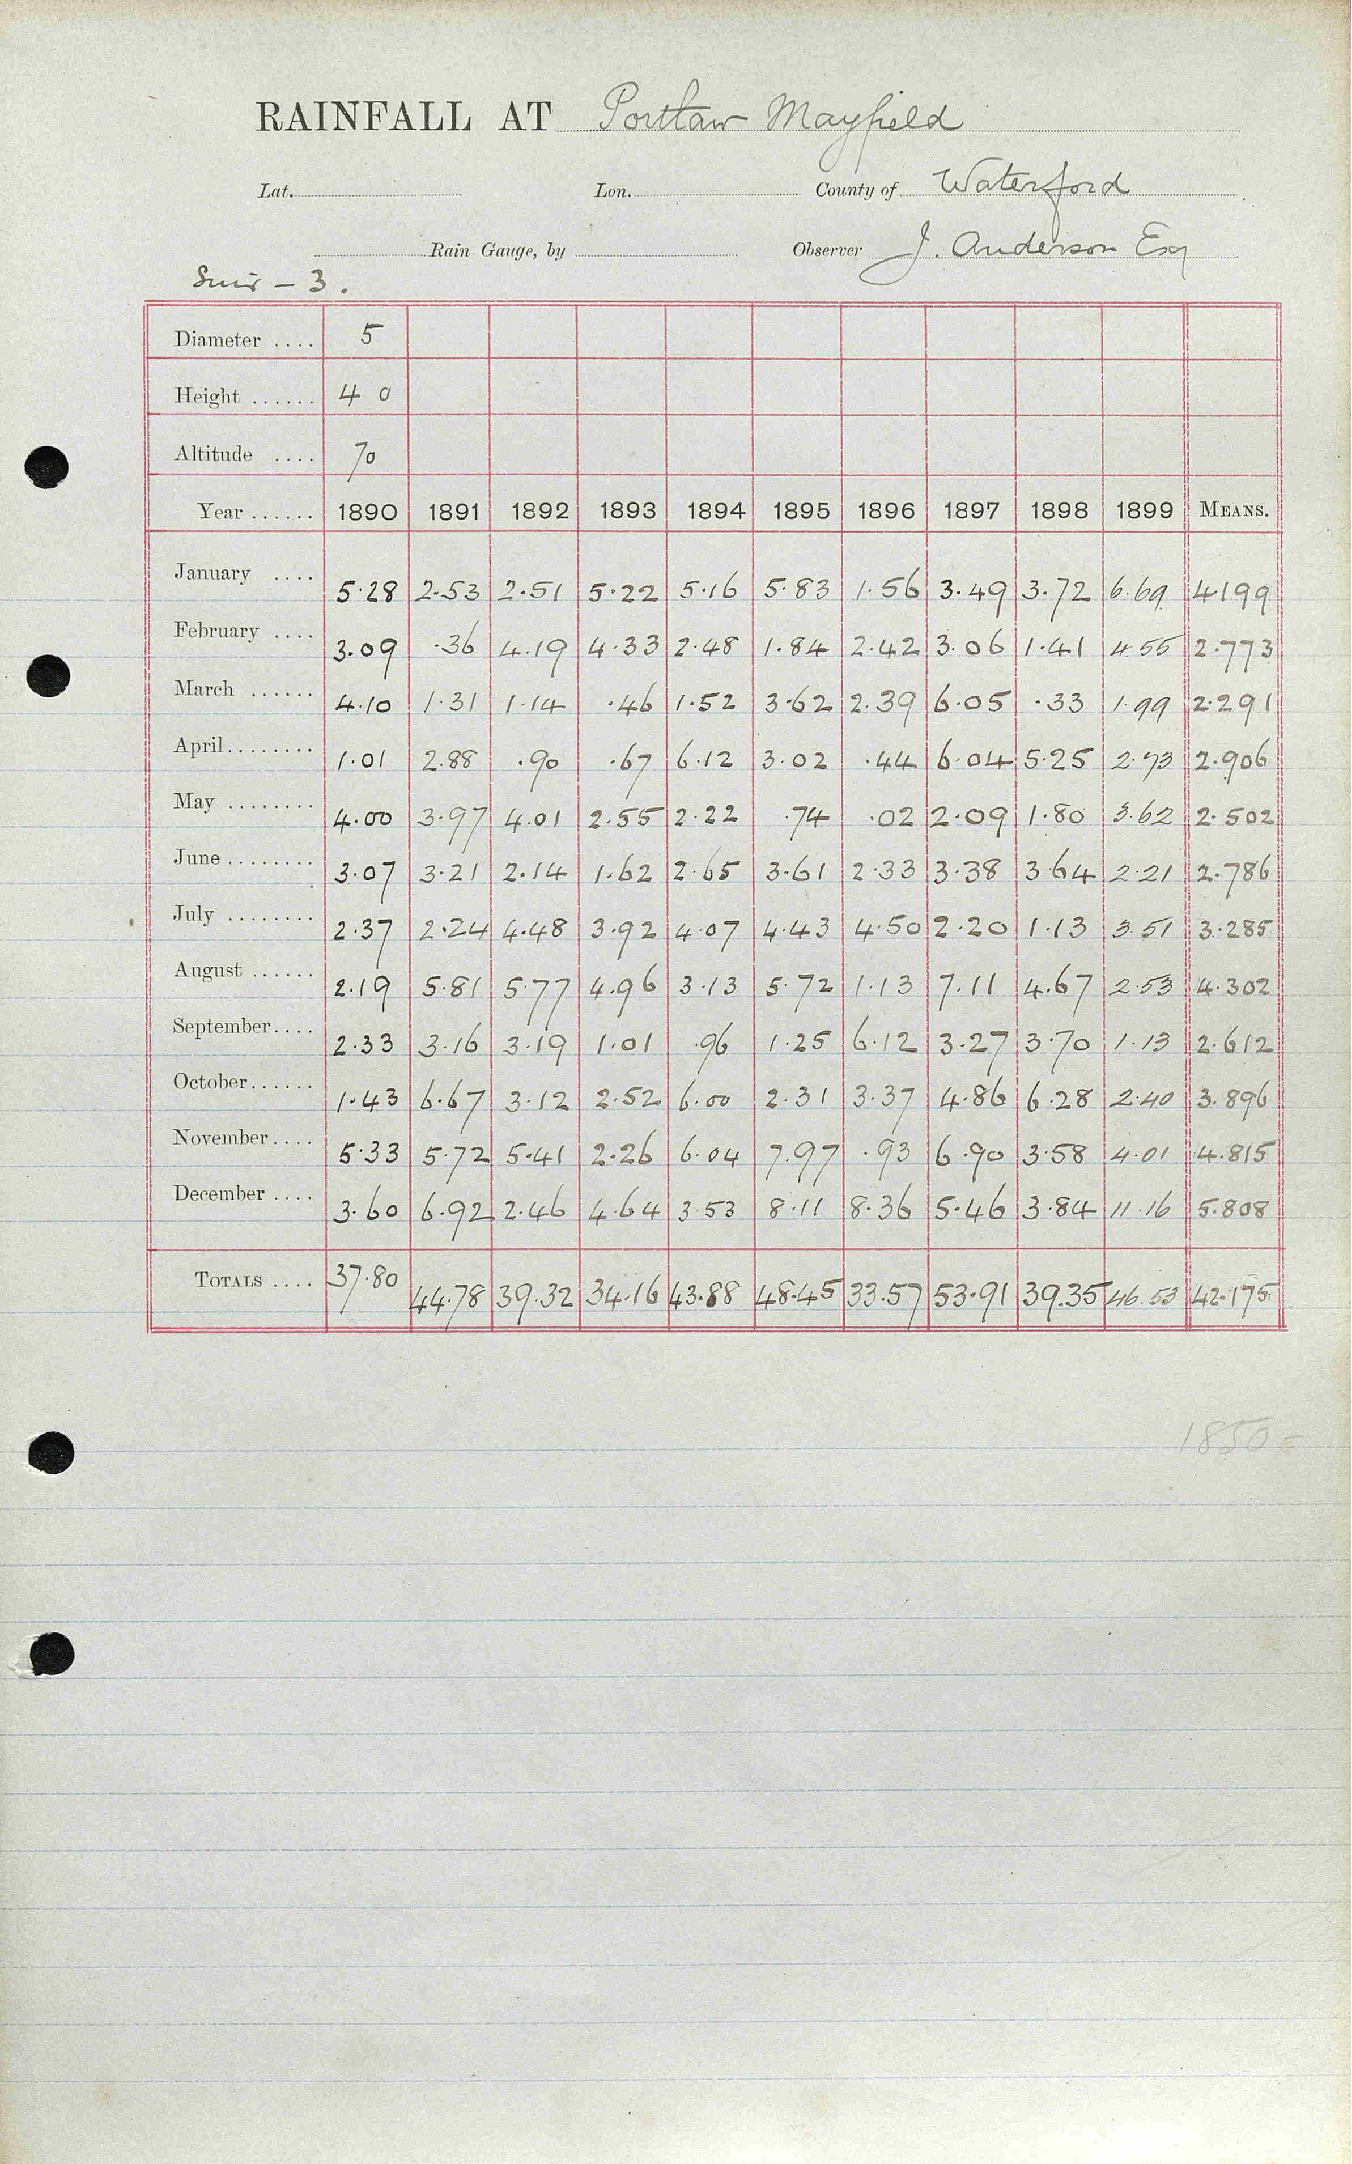 RAINFALL AT Portlaw Mayfield
Lat. Lon. County of Waterford
Rain Gauge, by Observer J. Anderson Esq
Suir – 3.
Diameter .... 5
Height ...... 4 0
Altitude .... 70
Year ...... 1890 1891 1892 1893 1894 1895 1896 1897 1898 1899 MEANS.
January .... 5.28 2.53 2.51 5.22 5.16 5.83 1.56 3.49 3.72 6.69 4.199
February .... 3.09 .36 4.19 4.33 2.48 1.84 2.42 3.06 1.41 4.55 2.773
March ...... 4.10 1.31 1.14 .46 1.52 3.62 2.39 6.05 .33 1.99 2.291
April........ 1.01 2.88 .90 .67 6.12 3.02 .44 6.04 5.25 2.73 2.906
May ........ 4.00 3.97 4.01 2.55 2.22 .74 .02 2.09 1.80 3.62 2.502
June ........ 3.07 3.21 2.14 1.62 2.65 3.61 2.33 3.38 3.64 2.21 2.786
July ........ 2.37 2.24 4.48 3.92 4.07 4.43 4.50 2.20 1.13 3.51 3.285
August ...... 2.19 5.81 5.77 4.96 3.13 5.72 1.13 7.11 4.67 2.53 4.302
September.... 2.33 3.16 3.19 1.01 .96 1.25 6.12 3.27 3.70 1.13 2.612
October...... 1.43 6.67 3.12 2.52 6.00 2.31 3.37 4.86 6.28 2.40 3.896
November.... 5.33 5.72 5.41 2.26 6.04 7.97 .93 6.90 3.58 4.01 4.815
December .... 3.60 6.92 2.46 4.64 3.53 8.11 8.36 5.46 3.84 11.16 5.808
TOTALS .... 37.80 44.78 39.32 34.16 43.88 48.45 33.57 53.91 39.35 46.53 42.175
1850 –